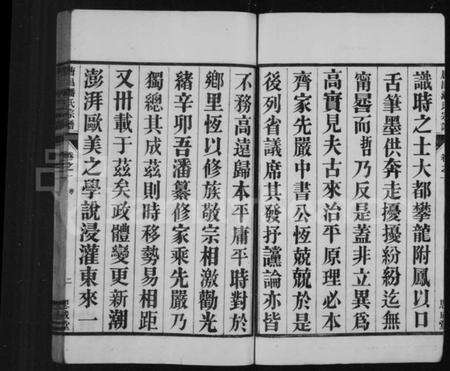 識時之士大都攀龍附鳳以口
舌筆墨供奔走擾擾紛紛迄無
甯晷而君乃反是蓋非立異爲
高實見夫古來治平原理必本
齊家先嚴中書公恆兢兢於是
後列省議席其發抒讜論亦皆
不務高遠歸本平庸平時對於
鄉里恆以修族敬宗相激勸光
緒辛卯吾潘纂修家乘先嚴乃
獨總其成茲則時移勢易相距
又卅載于茲矣政體變更新潮
澎湃歐美之學說浸灌東來一